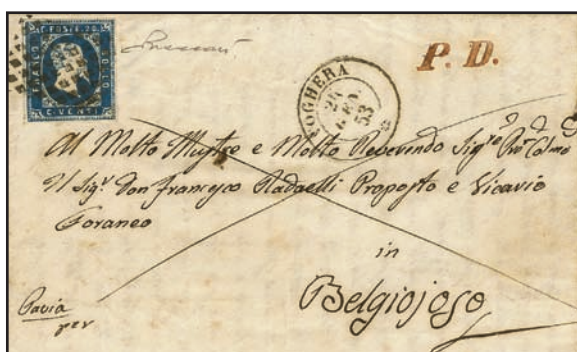 C. POSTE 20
FRANCO
BOLLO
C. VENTI
P. D.
VOGHERA
GEN
53
Al Molto Illustre e Molto Reverendo Sigre Pne Colmo
Il Sigr Don Francesco Radaelli Proposto e Vicario
Foraneo
in
Belgiojoso
Pavia
per